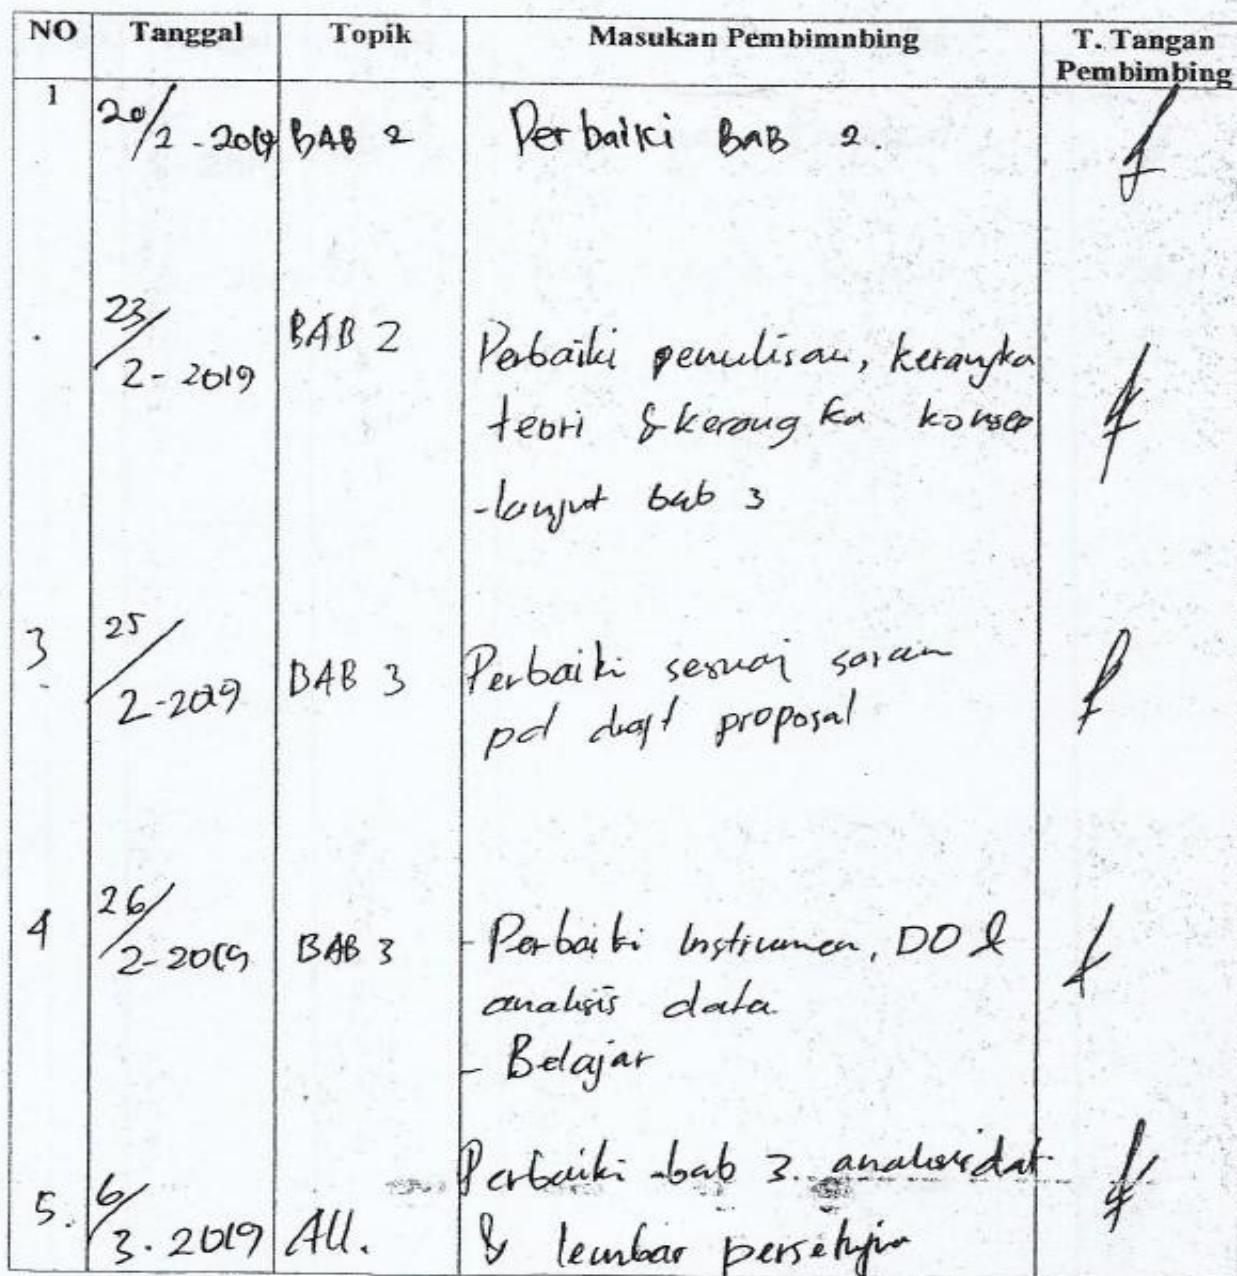 NO Tanggal Topik Masukan Pembimnbing T. Tangan
Pembimbing
1 20/2-2019 BAB 2 Perbaiki BAB 2.
23/2-2019 BAB 2 Perbaiki penulisan, kerangka
teori & kerangka konsep
-lanjut bab 3
3 25/2-2019 BAB 3 Perbaiki sesuai saran
pd draft proposal
4 26/2-2019 BAB 3 - Perbaiki Instrumen, DO &
analisis data
- Belajar
Perbaiki bab 3. analisis dat
5. 6/3.2019 All. & lembar persetujua